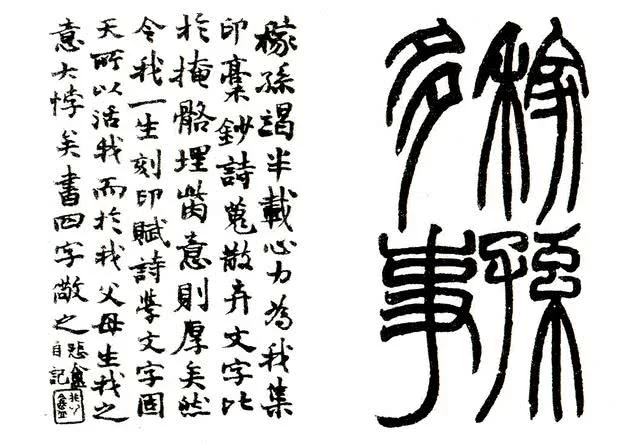 稼孫
多事
稼孫竭半載心力為我集
印稾鈔詩蒐散弃文字比
於掩骼埋胔意則厚矣然
令我一生刻印賦詩學文字固
天所以活我而於我父母生我之
意大悖矣書四字儆之
悲盦
自記